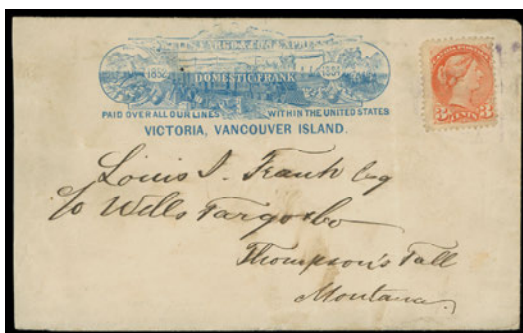 WELLS FARGO & CO. EXPRESS
1852 DOMESTIC FRANK 1884
PAID OVER ALL OUR LINES WITHIN THE UNITED STATES
VICTORIA, VANCOUVER ISLAND.
3 CENTS 3
Louis J. Frank Esq
c/o Wells Fargo & Co
Thompson's Fall
Montana